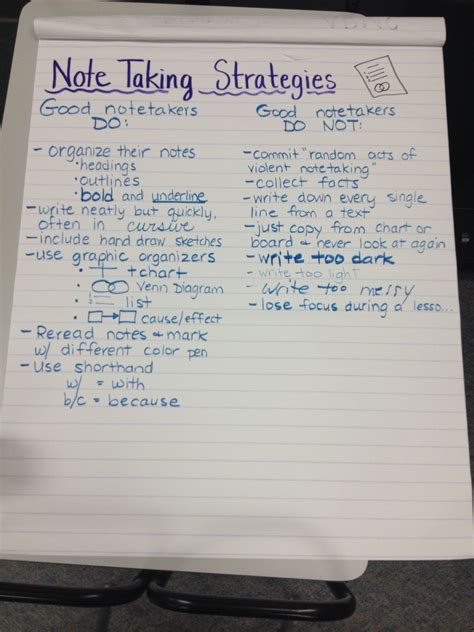 Note Taking Strategies
Good notetakers
DO:
- organize their notes
• headings
• outlines
• bold and underline
- write neatly but quickly,
often in cursive
- include hand draw sketches
- use graphic organizers
• t chart
• Venn Diagram
• list
• cause/effect
- Reread notes & mark
w/ different color pen
- Use shorthand
w/ = with
b/c = because
Good notetakers
DO NOT:
- commit "random acts of
violent notetaking"
- collect facts
- write down every single
line from a text
- just copy from chart or
board & never look at again
- write too dark
- write too light
- write too messy
- lose focus during a lesso...